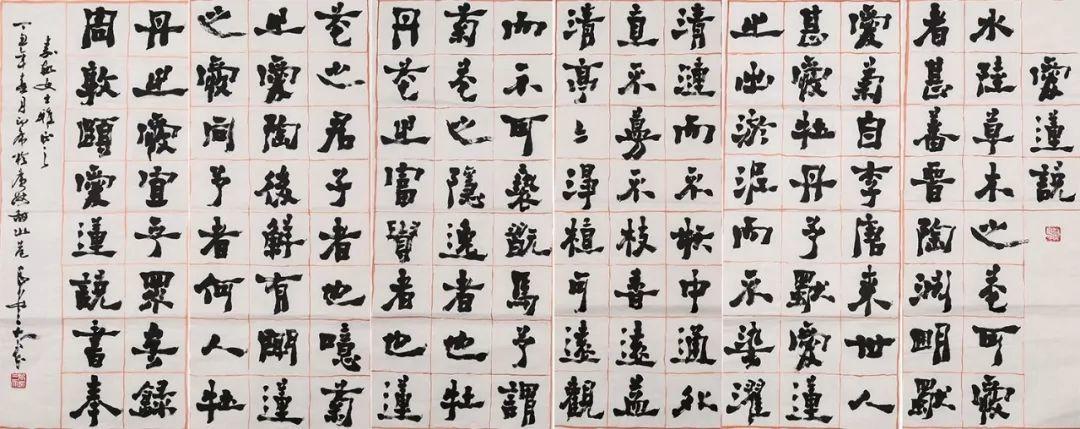 愛蓮說
水陸草木之花可愛
者甚蕃晉陶渊明獨
愛菊自李唐來世人
甚愛牡丹予獨愛蓮
之出淤泥而不染濯
清漣而不妖中通外
直不蔓不枝香遠益
清亭〻淨植可遠觀
而不可褻翫焉予謂
菊花之隱逸者也牡
丹花之富貴者也蓮
花之君子者也噫菊
之愛陶後鮮有聞蓮
之愛同予者何人牡
丹之愛宜乎眾矣錄
周敦頤愛蓮說書奉
女士雅正之
丁丑年春月